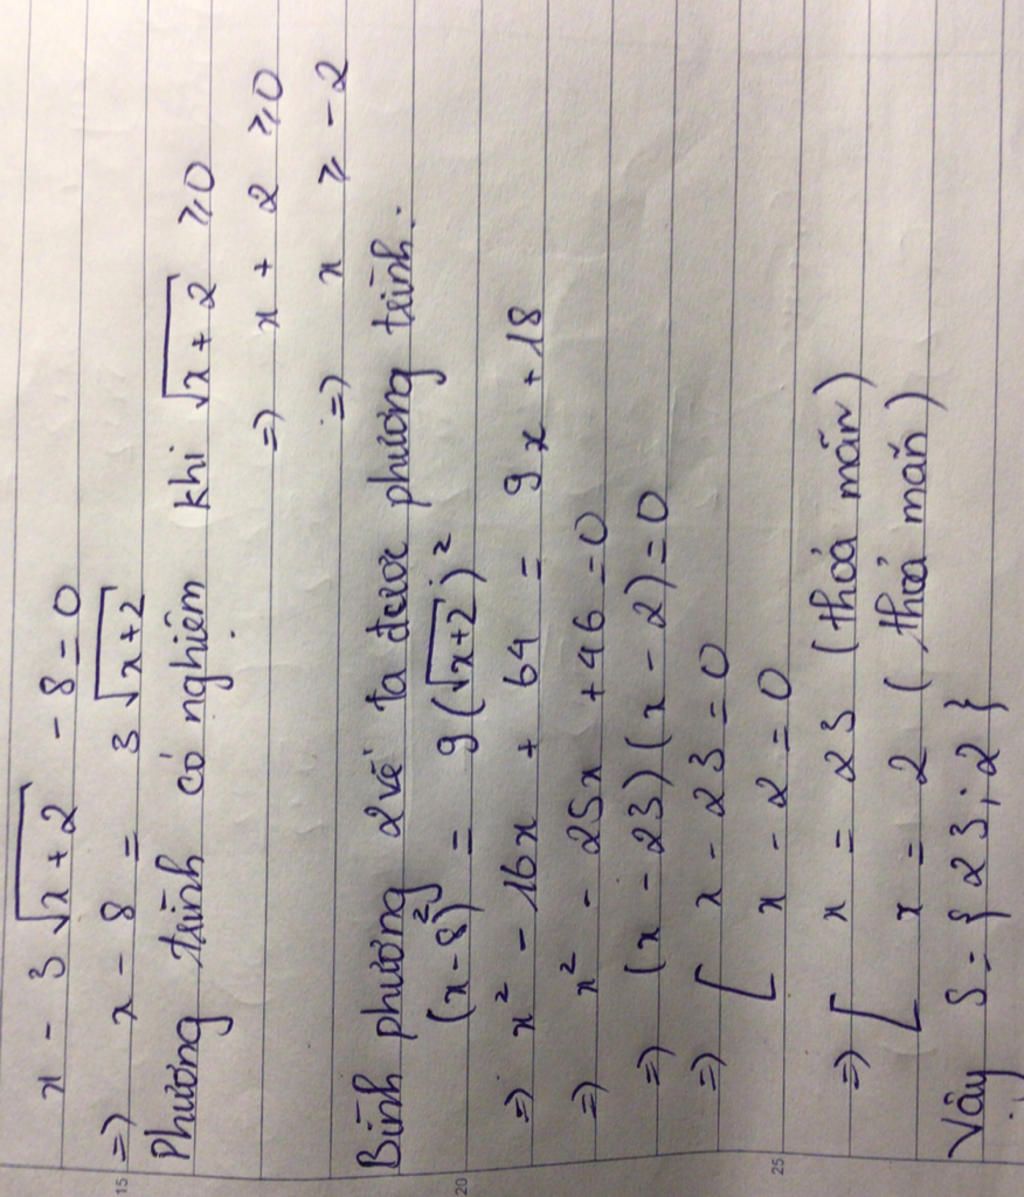 x - 3√(x+2) - 8 = 0
=) x - 8 = 3√(x+2)
Phương trình có nghiệm khi √(x+2) ≥ 0
=) x + 2 ≥ 0
=) x ≥ -2
Bình phương 2 vế ta được phương trình:
(x-8)² = 9(√(x+2))²
=) x² - 16x + 64 = 9x + 18
=) x² - 25x + 46 = 0
=) (x - 23)(x - 2) = 0
=) [ x - 23 = 0
x - 2 = 0
=) [ x = 23 (thoả mãn)
x = 2 (thoả mãn)
Vậy S = {23; 2}
15
20
25